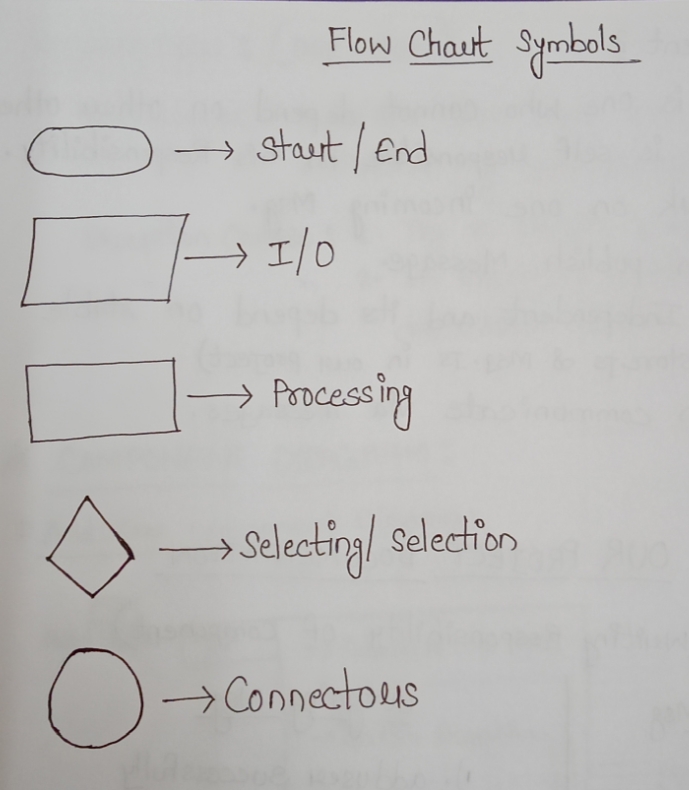 Flow Chart Symbols
→ Start / End
→ I/O
→ Processing
→ Selecting/ Selection
→ Connectors